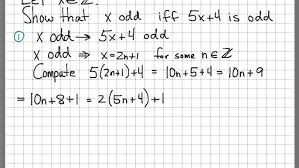 Let x∈ℤ.
Show that x odd iff 5x+4 is odd
① x odd → 5x+4 odd
x odd → x=2n+1 for some n∈ℤ
Compute 5(2n+1)+4 = 10n+5+4 = 10n+9
= 10n+8+1 = 2(5n+4)+1